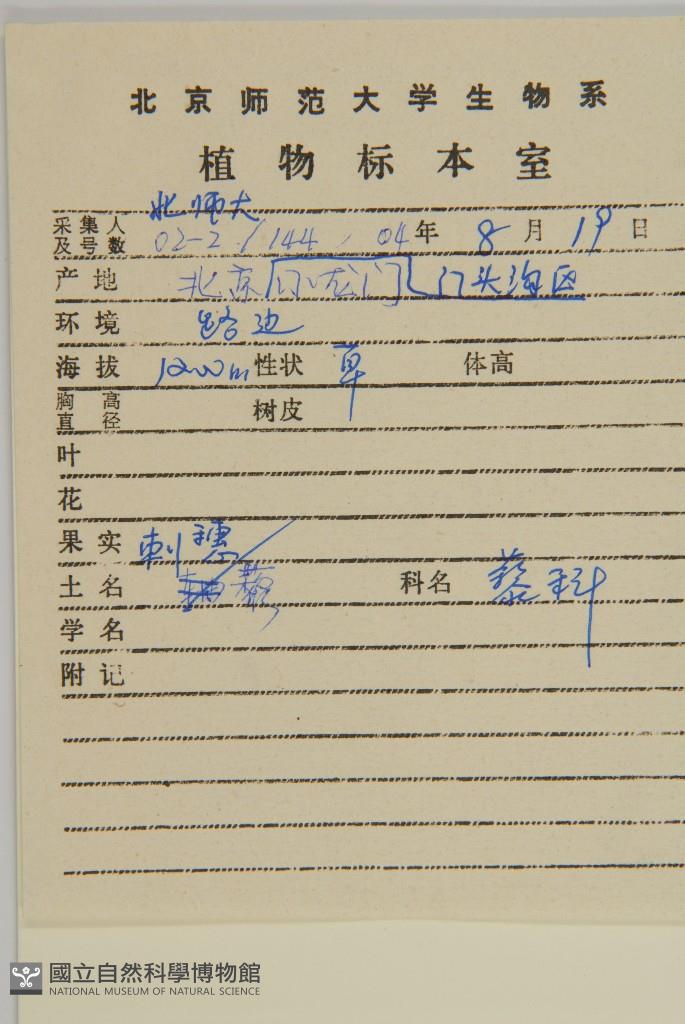 北京师范大学生物系
植物标本室
北师大
采集人及号数 02-2 / 144 , 04年 8月 19日
产地 北京 小龙门 门头沟区
环境 路边
海拔 1200m 性状 草 体高
胸高直径 树皮
叶
花
果实
土名 刺穗藜 科名 藜科
学名
附记
國立自然科學博物館
NATIONAL MUSEUM OF NATURAL SCIENCE